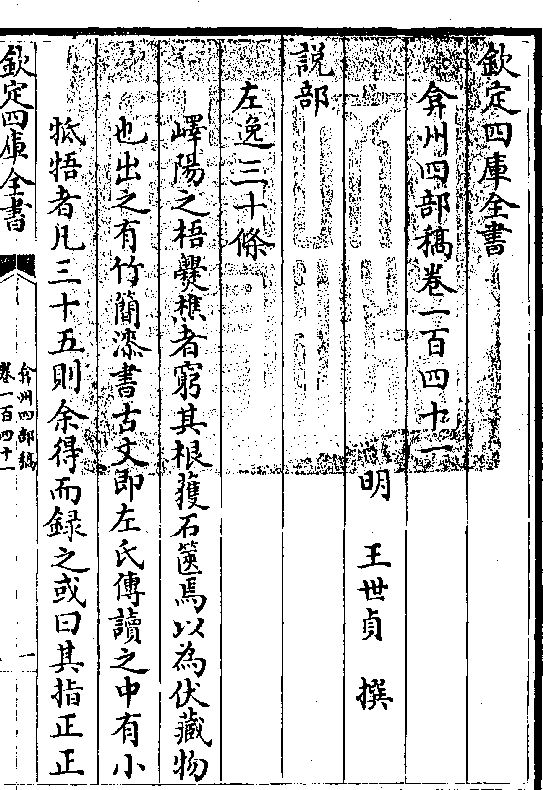 欽定四庫全書
弇州四部稿卷一百四十一
明　王世貞　撰
説部
左逸三十條
嶧陽之梧爨樵者窮其根獲石篋焉以為伏藏物
也出之有竹簡漆書古文即左氏傳讀之中有小
牴牾者凡三十五則余得而録之或曰其指正正
欽定四庫全書
弇州四部稿
卷一百四十一
一